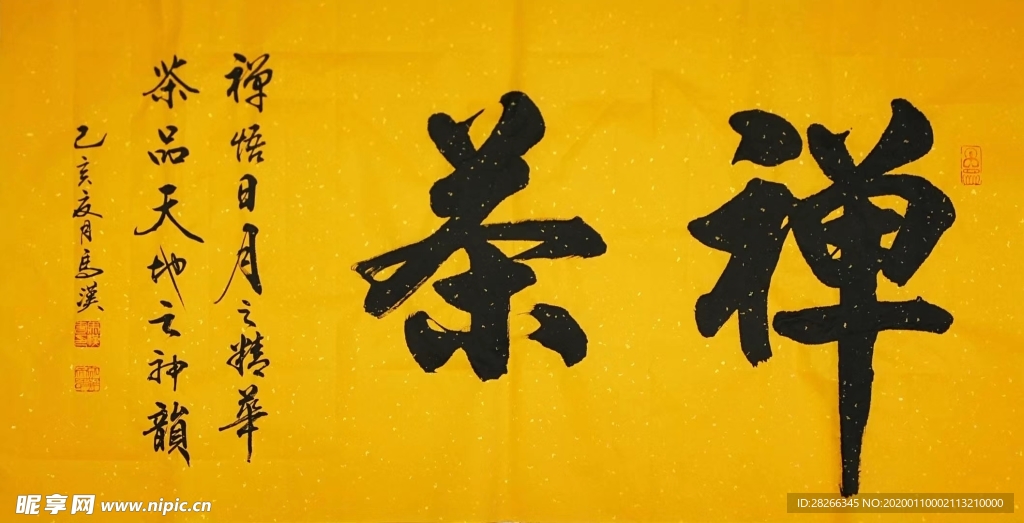 禅茶
禅悟日月之精華
茶品天地之神韻
己亥夏月馬漢
昵享网 www.nipic.cn
ID:28266345 NO:20200110002113210000